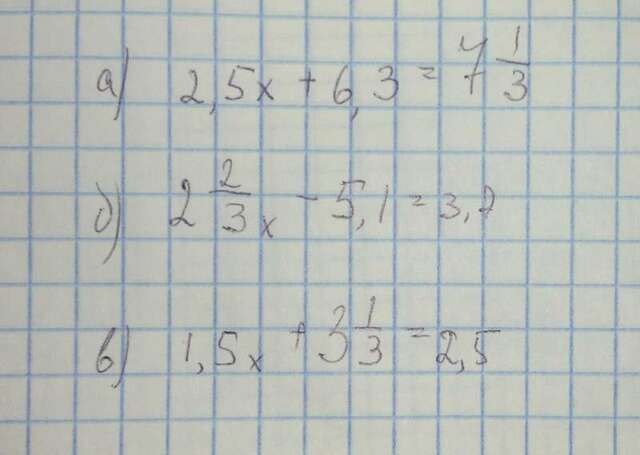 а) 2,5x + 6,3 = 7 1/3
б) 2 2/3 x - 5,1 = 3,7
в) 1,5x + 3 1/3 = 2,5